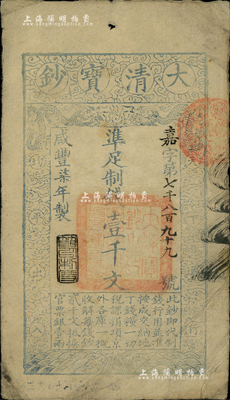 上海泓盛
大清寶鈔
嘉字第七千八百九十九號
準足制錢壹千文
咸豐柒年製
此鈔即代制
錢行用並准
按成交納地
丁錢糧一切
稅課捐項京
外各庫一概
收解每錢鈔
貳千文抵換
官票銀壹兩
上海泓盛